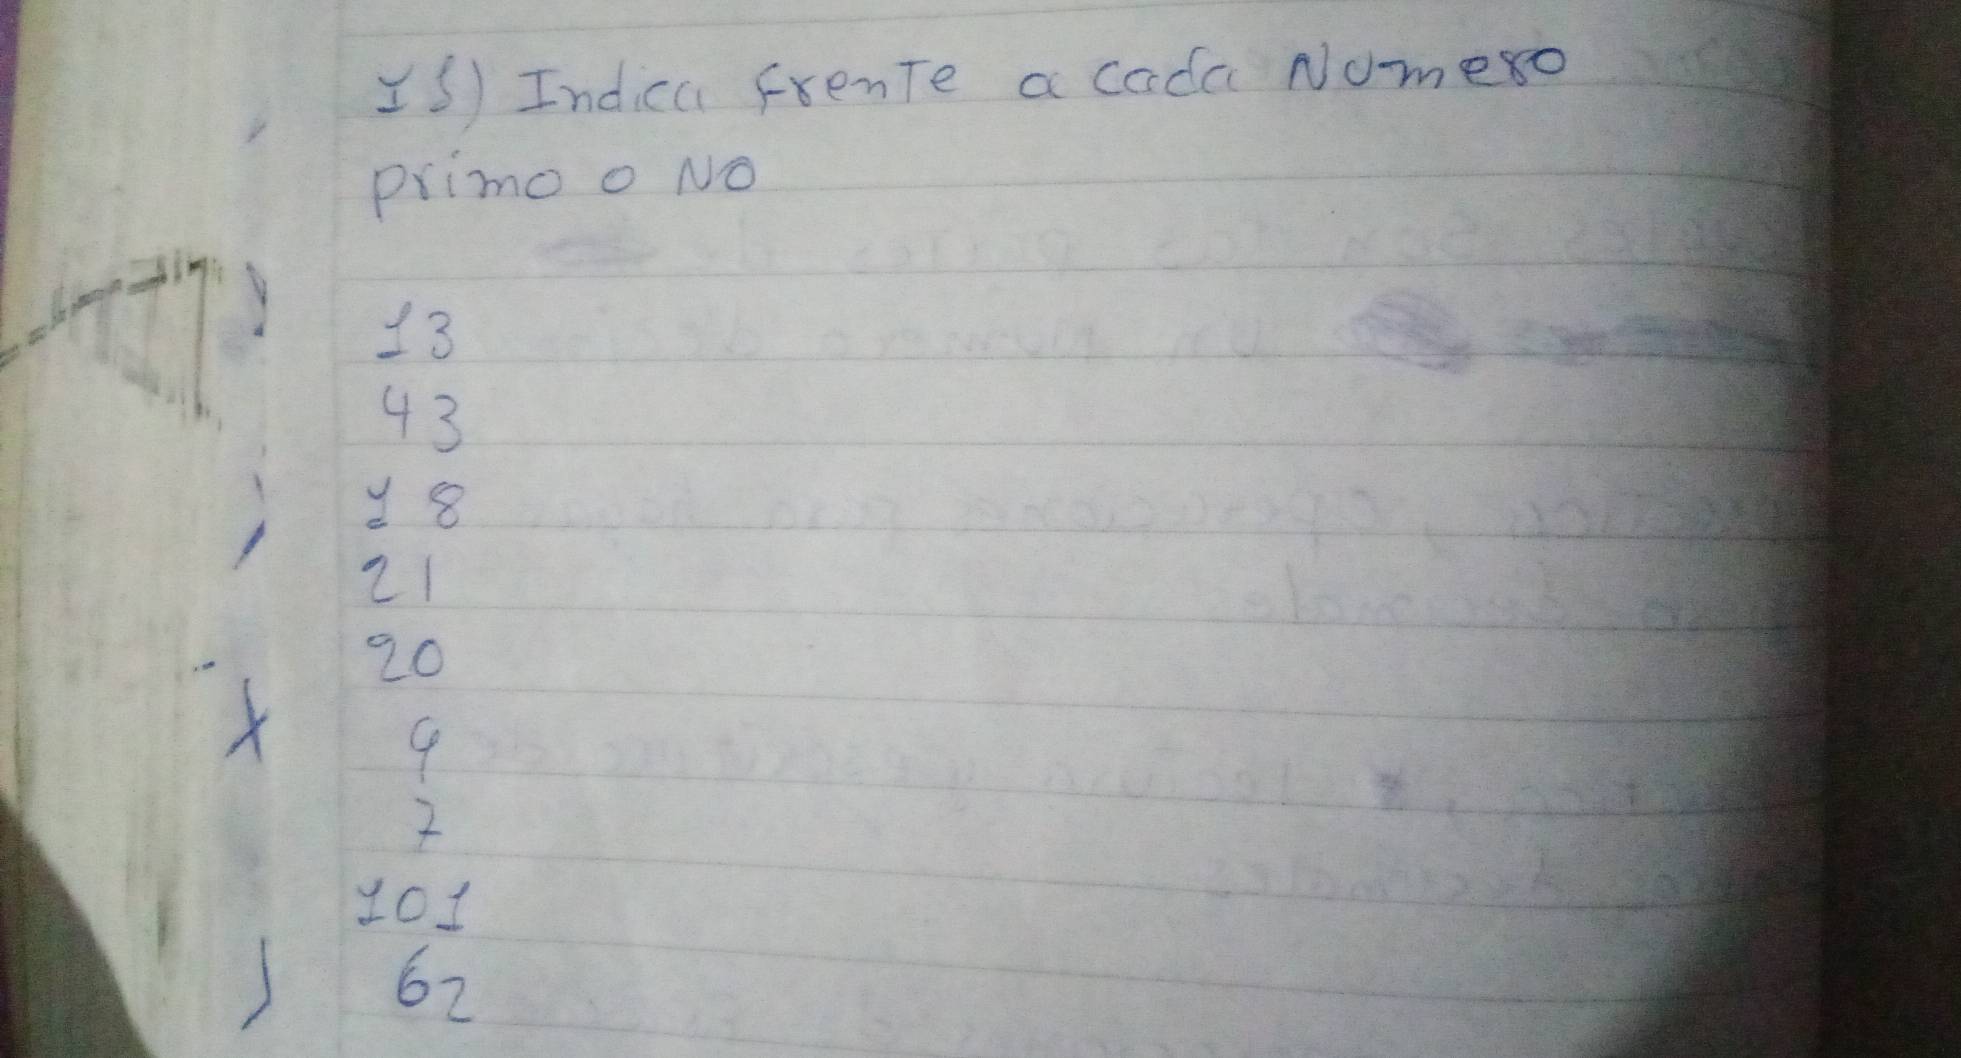 15) Indica frente a cada Numero
primo o NO
13
43
18
21
20
9
7
101
62